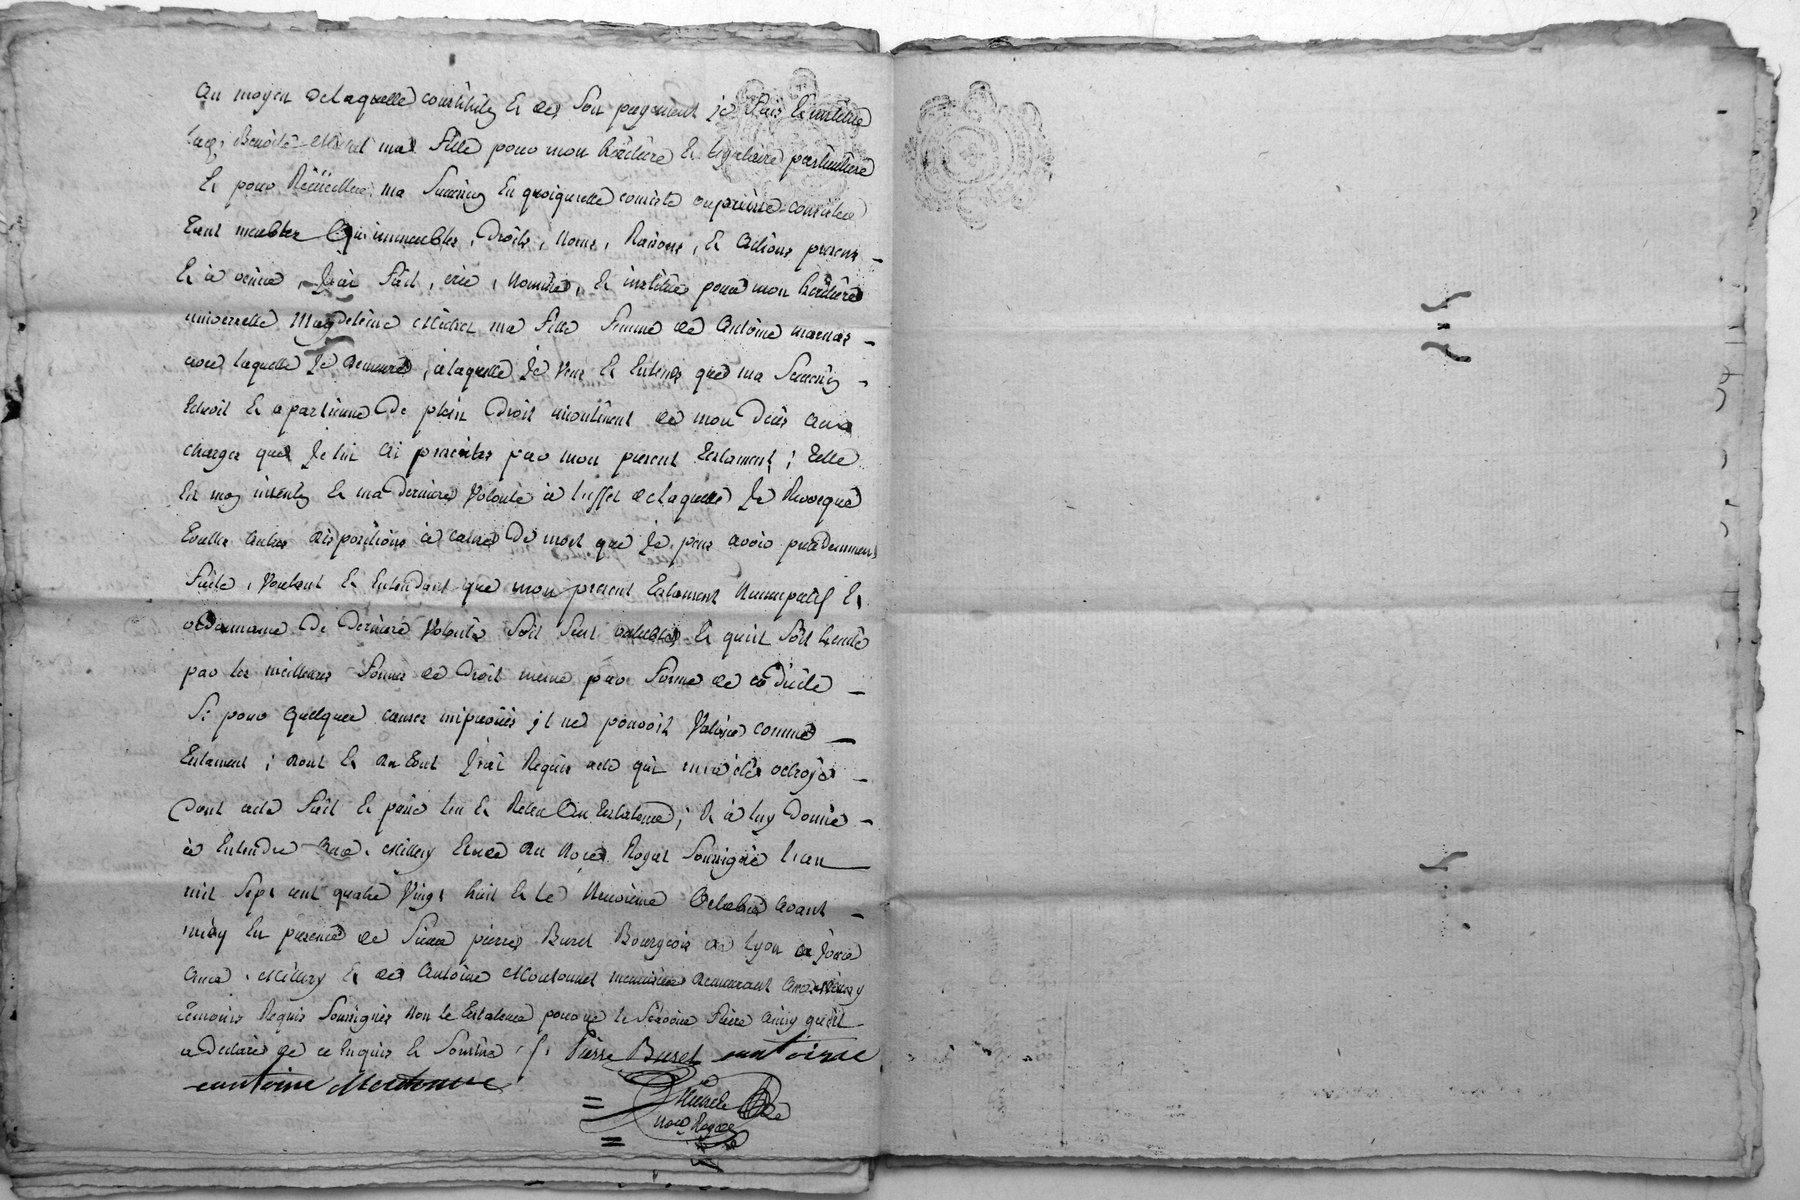 au moyen de laquelle constituõn et des son payement je fais & institue
lad. Benoite Michel ma fille pour mon héritière & légataire particulière
Et pour Récueillir ma Successiõn En quoiquelle consiste ou puisse consister
tant meubles qu'immeubles, Droits, Noms, Raisons, & Actions presens
Et à venir, J'ai fait, créé, Nommé, & institué pour mon héritière
universelle Magdeleine Michel ma fille femme de Antoine marnas
avec laquelle Je demeure, à laquelle Je veux Et Entends que ma Successiõn
Echoit Et apartienne De plein Droit incontinent de mon Décès aux
charges que Je lui ai prescrites par mon present testament; telle
Est moñ intentõn Et ma Dernière Volonté à l'effet de laquelle Je Revoque
toutte autres dispositions à cause De mort que Je peux avoir precedemment
faite, Voulant Et Entendant que mon present testament Nuncupatif Et
ordonnance De Dernière Volonté soit seul valable Et qu'il soit Executé
par les meilleures formes de Droit meme par forme de codicile
Si pour quelques causes impreuës il ne pouvoit Valoir comme
testament; dont Et du tout J'ait Requis acte qui m'a été octroyé
Dont acte fait Et passé lu Et Relu Au testateur, & à luy Donné
à Entendre Aud. Millery Etude du No.re Royal Soussigné l'an
mil sept cent quatre vingt huit Et le Neuvieme Octobre avant
midy En presence de sieur pierre Buret Bourgeois de Lyon
Aud. Millery Et de Antoine Moutonnet menuisier demeurant
temoins Requis Soussignés Non le testateur pour ne le Sçavoir faire ainsy qu'il
a Declaré de ce Enquis Et Sommé. Pierre Buret antoine
antoine
Michel
No.re Royal